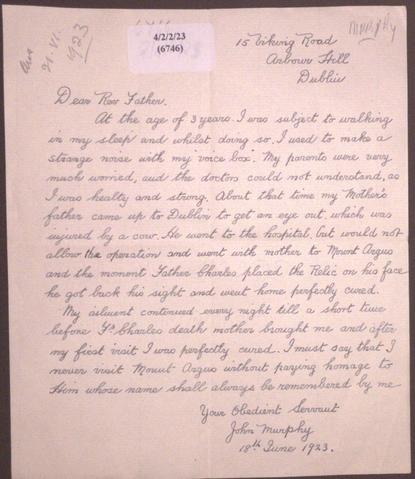 Ans
21.VI.
1923
4/2/2/23
(6746)
MURPHY
15 Viking Road
Arbour Hill
Dublin
Dear Rev Father.
At the age of 3 years. I was subject to walking
in my sleep and whilst doing so, I used to make a
strange noise with my voice box. My parents were very
much worried, and the doctors could not understand, as
I was healty and strong. About that time my Mother's
father came up to Dublin to get an eye out, which was
injured by a cow. He went to the hospital, but would not
allow the operation and went with mother to Mount Argus
and the moment Father Charles placed the Relic on his face
he got back his sight and went home perfectly cured.
My ailment continued every night till a short time
before Fr Charles death mother brought me and after
my first visit I was perfectly cured. I must say that I
never visit Mount Argus without paying homage to
Him whose name shall always be remembered by me
Your Obedient Servant
John Murphy
18th June 1923.